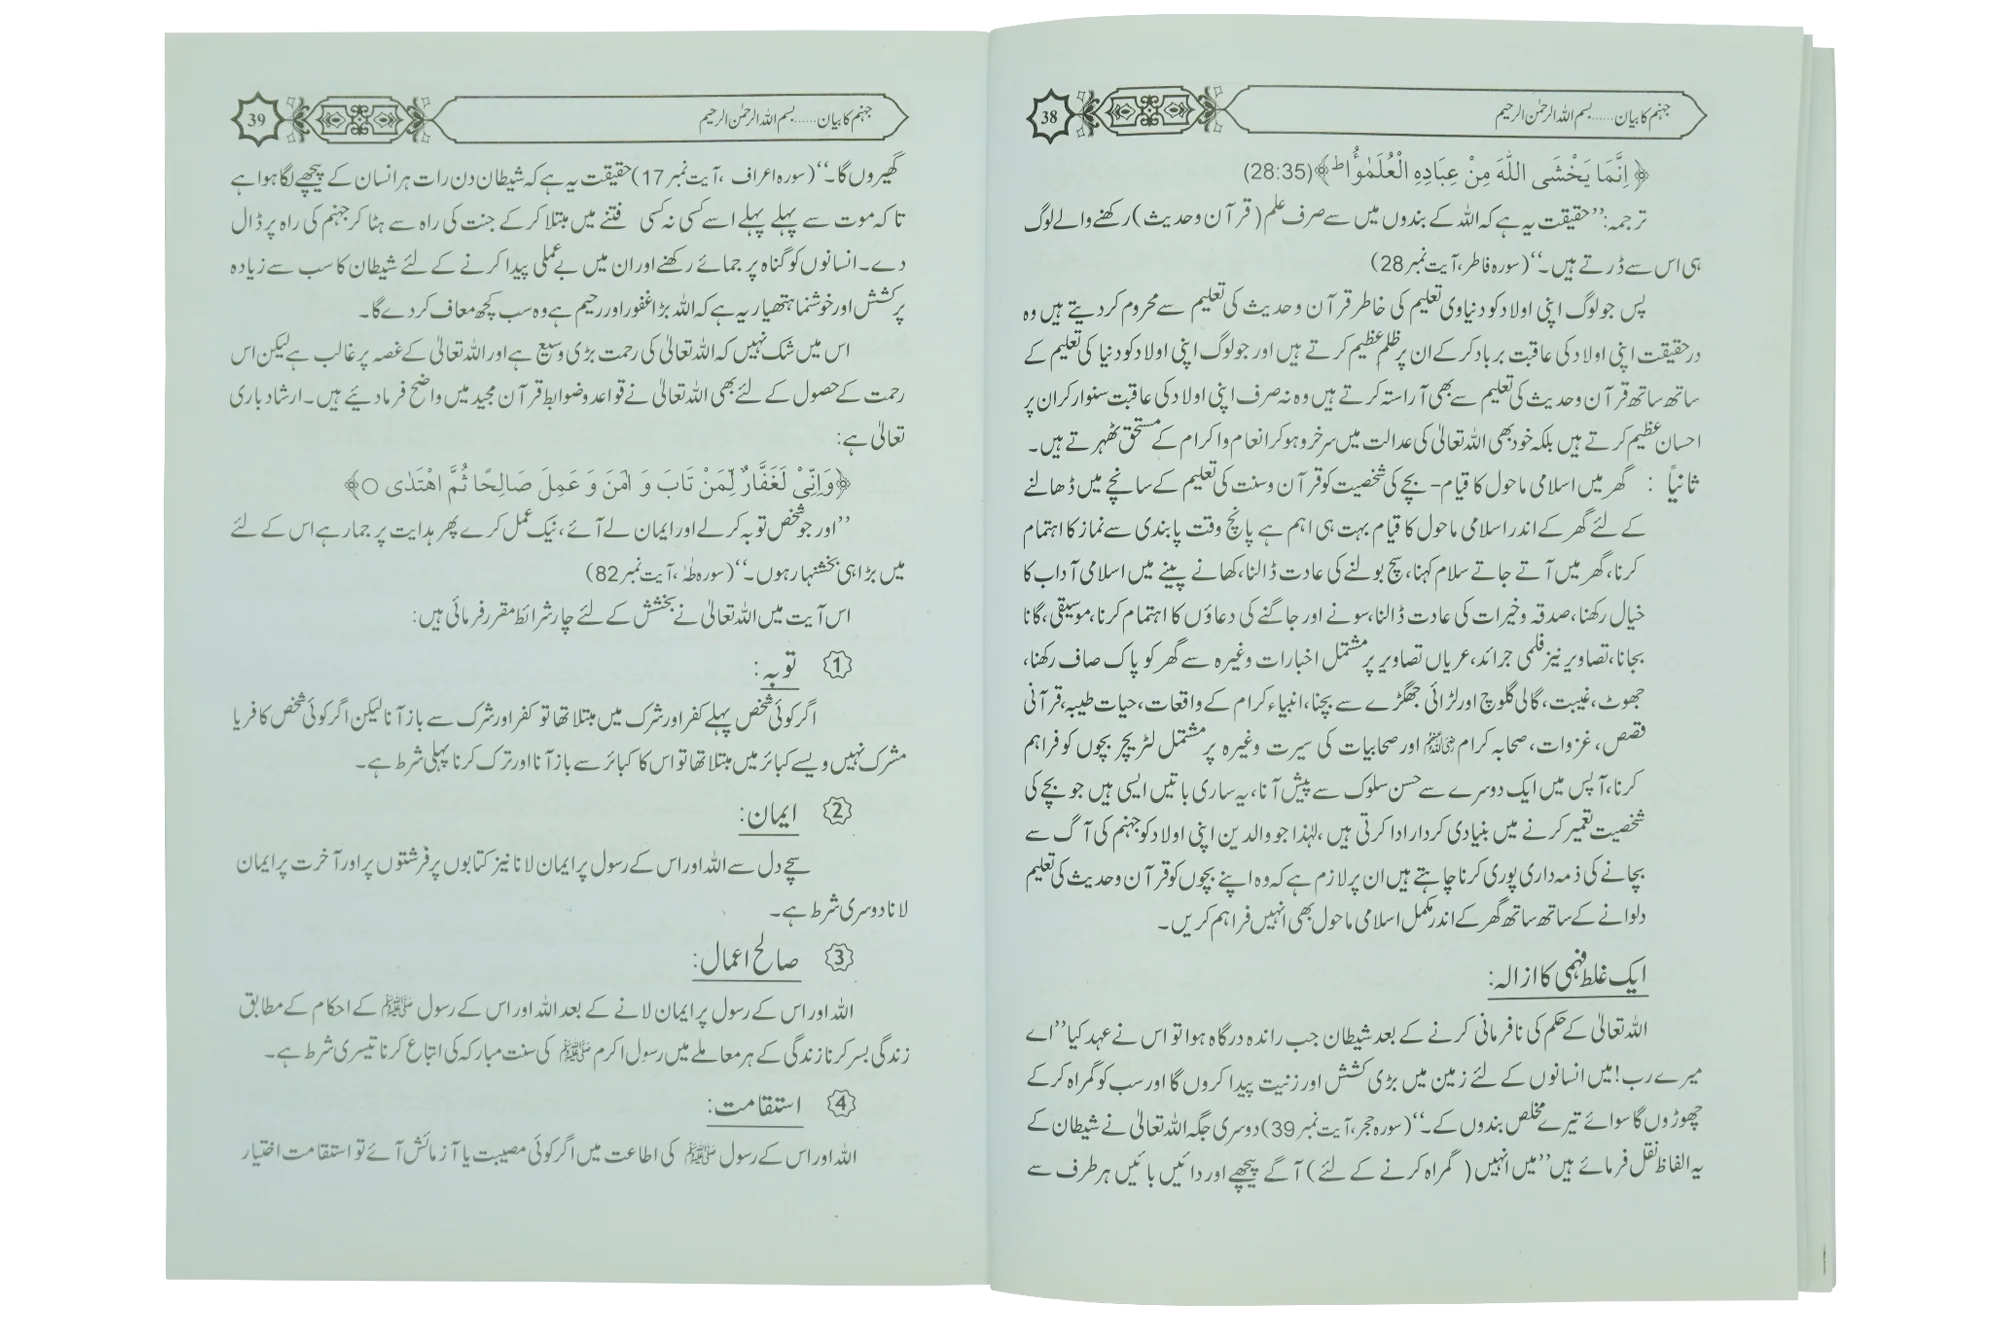 جہنم کا بیان......بسم اللہ الرحمٰن الرحیم
38
﴿ اِنَّمَا يَخْشَى اللّٰهَ مِنْ عِبَادِهِ الْعُلَمٰٓؤُا ط﴾(28:35)
ترجمہ:’’حقیقت یہ ہے کہ اللہ کے بندوں میں سے صرف علم( قرآن وحدیث )رکھنے والے لوگ
ہی اس سے ڈرتے ہیں۔‘‘(سورہ فاطر،آیت نمبر28)
پس جو لوگ اپنی اولاد کو دنیاوی تعلیم کی خاطر قرآن وحدیث کی تعلیم سے محروم کردیتے ہیں وہ
درحقیقت اپنی اولاد کی عاقبت برباد کرکے ان پر ظلم عظیم کرتے ہیں اور جو لوگ اپنی اولاد کو دنیا کی تعلیم کے
ساتھ ساتھ قرآن وحدیث کی تعلیم سے بھی آراستہ کرتے ہیں وہ نہ صرف اپنی اولاد کی عاقبت سنوار کر ان پر
احسان عظیم کرتے ہیں بلکہ خود بھی اللہ تعالیٰ کی عدالت میں سرخرو ہو کر انعام واکرام کے مستحق ٹھہرتے ہیں۔
ثانیاً : گھر میں اسلامی ماحول کا قیام- بچے کی شخصیت کو قرآن وسنت کی تعلیم کے سانچے میں ڈھالنے
کے لئے گھر کے اندر اسلامی ماحول کا قیام بہت ہی اہم ہے پانچ وقت پابندی سے نماز کا اہتمام
کرنا، گھر میں آتے جاتے سلام کہنا، سچ بولنے کی عادت ڈالنا، کھانے پینے میں اسلامی آداب کا
خیال رکھنا، صدقہ وخیرات کی عادت ڈالنا، سونے اور جاگنے کی دعاؤں کا اہتمام کرنا، موسیقی، گانا
بجانا، تصاویر نیز فلمی جرائد، عریاں تصاویر پر مشتمل اخبارات وغیرہ سے گھر کو پاک صاف رکھنا،
جھوٹ، غیبت، گالی گلوچ اور لڑائی جھگڑے سے بچنا، انبیاء کرام کے واقعات، حیات طیبہ، قرآنی
قصص، غزوات، صحابہ کرام رضی اللہ عنہم اور صحابیات کی سیرت وغیرہ پر مشتمل لٹریچر بچوں کو فراہم
کرنا، آپس میں ایک دوسرے سے حسن سلوک سے پیش آنا، یہ ساری باتیں ایسی ہیں جو بچے کی
شخصیت تعمیر کرنے میں بنیادی کردار ادا کرتی ہیں، لہٰذا جو والدین اپنی اولاد کو جہنم کی آگ سے
بچانے کی ذمہ داری پوری کرنا چاہتے ہیں ان پر لازم ہے کہ وہ اپنے بچوں کو قرآن وحدیث کی تعلیم
دلوانے کے ساتھ ساتھ گھر کے اندر مکمل اسلامی ماحول بھی انہیں فراہم کریں۔
ایک غلط فہمی کا ازالہ:
اللہ تعالیٰ کے حکم کی نافرمانی کرنے کے بعد شیطان جب راندہ درگاہ ہوا تو اس نے عہد کیا’’اے
میرے رب!میں انسانوں کے لئے زمین میں بڑی کشش اور زنیت پیدا کروں گا اور سب کو گمراہ کرکے
چھوڑوں گا سوائے تیرے مخلص بندوں کے۔‘‘(سورہ حجر،آیت نمبر39)دوسری جگہ اللہ تعالیٰ نے شیطان کے
یہ الفاظ نقل فرمائے ہیں’’میں انہیں( گمراہ کرنے کے لئے) آگے پیچھے اور دائیں بائیں ہر طرف سے
جہنم کا بیان......بسم اللہ الرحمٰن الرحیم
39
گھیروں گا۔‘‘(سورہ اعراف ،آیت نمبر17)حقیقت یہ ہے کہ شیطان دن رات ہر انسان کے پیچھے لگا ہوا ہے
تاکہ موت سے پہلے پہلے اسے کسی نہ کسی فتنے میں مبتلا کرکے جنت کی راہ سے ہٹا کر جہنم کی راہ پر ڈال
دے۔انسانوں کو گناہ پر جمائے رکھنے اور ان میں بے عملی پیدا کرنے کے لئے شیطان کا سب سے زیادہ
پرکشش اور خوشنما ہتھیار یہ ہے کہ اللہ بڑا غفور اور رحیم ہے وہ سب کچھ معاف کردے گا۔
اس میں شک نہیں کہ اللہ تعالیٰ کی رحمت بڑی وسیع ہے اور اللہ تعالیٰ کے غصہ پر غالب ہے لیکن اس
رحمت کے حصول کے لئے بھی اللہ تعالیٰ نے قواعد وضوابط قرآن مجید میں واضح فرمادیئے ہیں۔ارشاد باری
تعالیٰ ہے:
﴿وَاِنِّىْ لَغَفَّارٌ لِّمَنْ تَابَ وَ اٰمَنَ وَ عَمِلَ صَالِحًا ثُمَّ اهْتَدٰى ○﴾
’’اور جو شخص توبہ کرلے اور ایمان لے آئے، نیک عمل کرے پھر ہدایت پر جما رہے اس کے لئے
میں بڑا ہی بخشنہار ہوں۔‘‘(سورہ طہٰ ،آیت نمبر82)
اس آیت میں اللہ تعالیٰ نے بخشش کے لئے چار شرائط مقرر فرمائی ہیں:
1 توبہ:
اگر کوئی شخص پہلے کفر اور شرک میں مبتلا تھا تو کفر اور شرک سے باز آنا لیکن اگر کوئی شخص کافر یا
مشرک نہیں ویسے کبائر میں مبتلا تھا تو اس کا کبائر سے باز آنا اور ترک کرنا پہلی شرط ہے۔
2 ایمان:
سچے دل سے اللہ اور اس کے رسول پر ایمان لانا نیز کتابوں پر فرشتوں پر اور آخرت پر ایمان
لانا دوسری شرط ہے۔
3 صالح اعمال:
اللہ اور اس کے رسول پر ایمان لانے کے بعد اللہ اور اس کے رسول ﷺ کے احکام کے مطابق
زندگی بسر کرنا زندگی کے ہر معاملے میں رسول اکرم ﷺ کی سنت مبارکہ کی اتباع کرنا تیسری شرط ہے۔
4 استقامت:
اللہ اور اس کے رسول ﷺ کی اطاعت میں اگر کوئی مصیبت یا آزمائش آئے تو استقامت اختیار